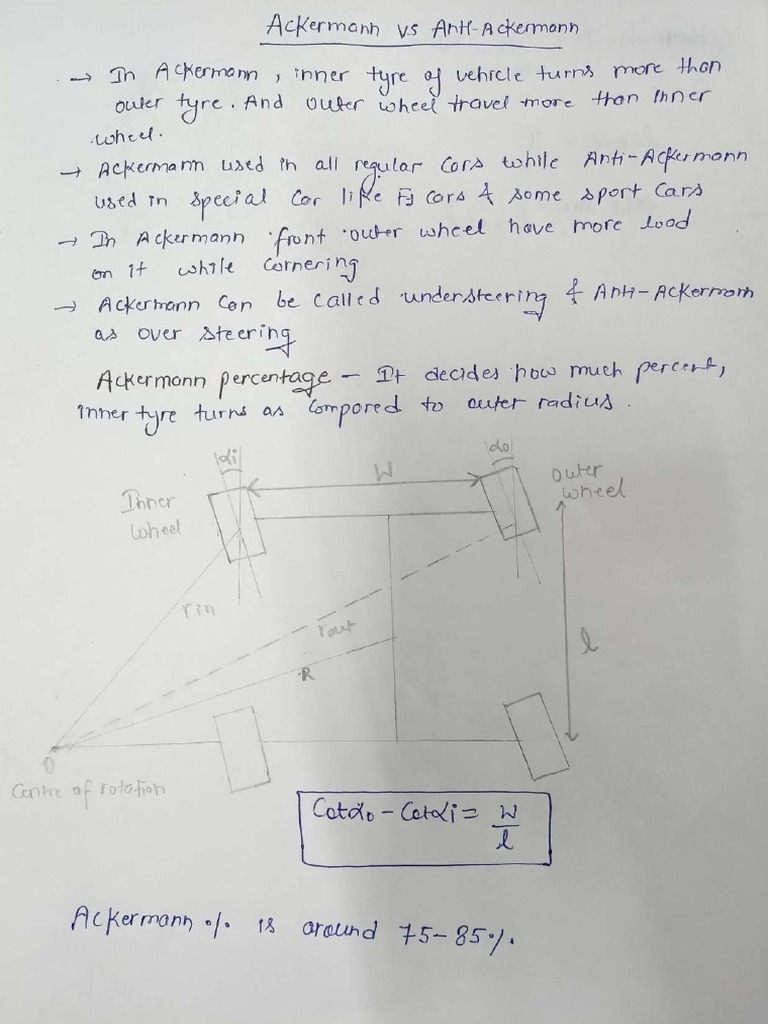 Ackermann vs Anti-Ackermann
→ In Ackermann, inner tyre of vehicle turns more than
outer tyre. And outer wheel travel more than inner
wheel.
→ Ackermann used in all regular cars while Anti-Ackermann
used in special car like F1 cars & some sport cars
→ In Ackermann front outer wheel have more load
on it while cornering
→ Ackermann can be called understeering & Anti-Ackermann
as over steering
Ackermann percentage – It decides how much percent,
inner tyre turns as compared to outer radius.
αi
αo
W
Inner
wheel
outer
wheel
rin
rout
R
l
O
Centre of rotation
Cotαo – Cotαi = W/l
Ackermann % is around 75–85%.